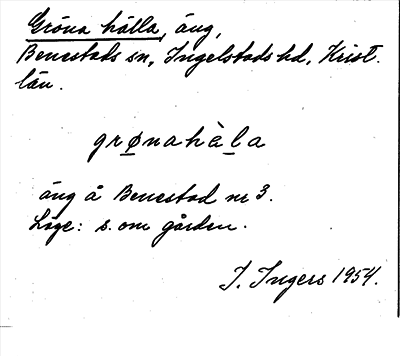 Gröna hälla, äng,
Benestads sn, Ingelstads hd, Krist.
län.
grønahὲla
äng å Benestad nr 3.
Läge: s. om gården.
I. Ingers 1954.